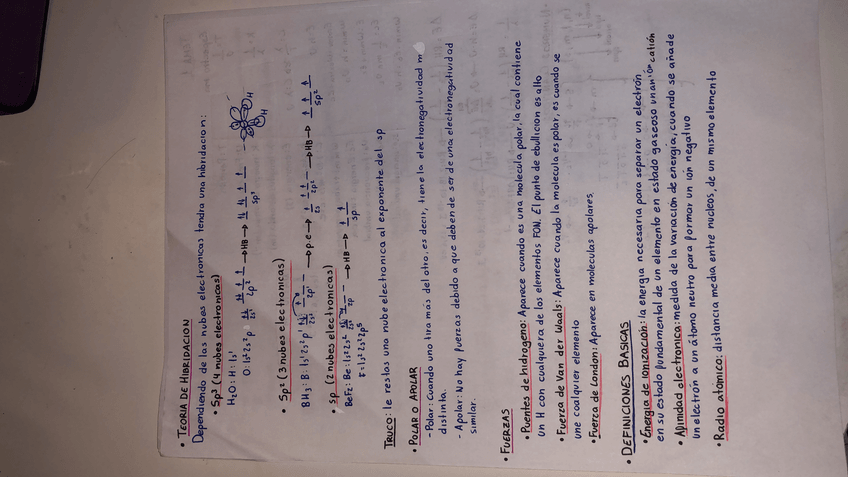 • TEORIA DE HIBRIDACION
Dependiendo de las nubes electronicas tendra una hibridacion:
• Sp³ (4 nubes electronicas)
H₂O: H: 1s¹
O: 1s² 2s² p⁴ 2s² 2p⁴ → HB → sp³
H
H
• Sp² (3 nubes electronicas)
BH₃: B: 1s² 2s² 2p¹ 2s² 2p¹ → p.e → 2s 2p² → HB → sp²
• sp (2 nubes electronicas)
BeF₂: Be: 1s² 2s² 2s² 2p → HB → sp
F: 1s² 2s² 2p⁵
TRUCO: le restas una nube electronica al exponente del sp
• POLAR O APOLAR
- Polar: Cuando una tira más del otro, es decir, tiene la electronegatividad
distinta.
- Apolar: No hay fuerzas debido a que deben de ser de una electronegatividad
similar.
• FUERZAS
• Puentes de hidrogeno: Aparece cuando es una molecula polar, la cual contiene
un H con cualquiera de los elementos FON. El punto de ebullicion es alto
• Fuerza de Van der Waals: Aparece cuando la molecula es polar, es cuando se
une cualquier elemento
• Fuerza de London: Aparece en moleculas apolares.
• DEFINICIONES BASICAS
• Energia de ionización: la energia necesaria para separar un electrón
en su estado fundamental de un elemento en estado gaseoso catión
• Afinidad electronica: medida de la variación de energía, cuando se añade
un electrón a un átomo neutro para formar un ión negativo
• Radio atómico: distancia media entre nucleos, de un mismo elemento